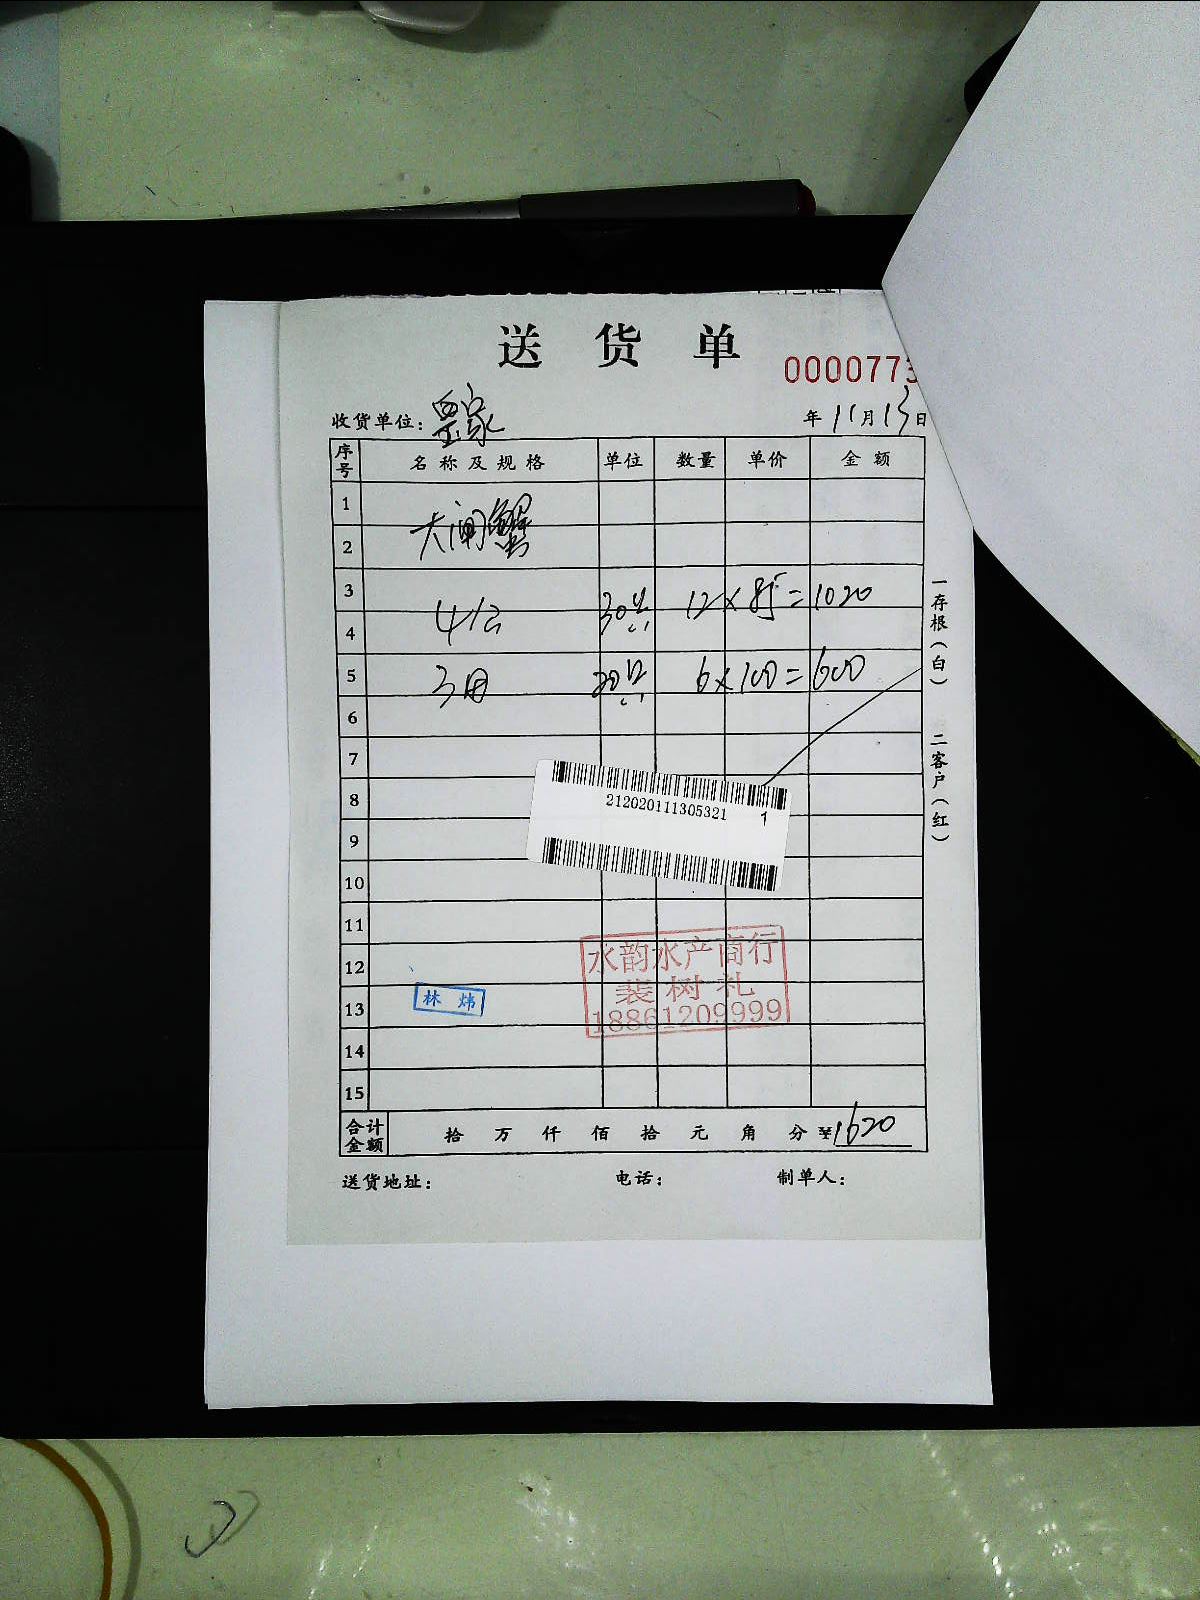 送 货 单
000077
收货单位: 皇家 年 11月13日
序号 名称及规格 单位 数量 单价 金额
1
大闸蟹
2
3
4公 30只 12×85=1020
4
5
3母 20只 6×100=600
6
7
8
9
10
11
12
13
14
15
212020111305321 1
水韵水产商行
裴树礼
18861209999
林炜
合计金额 拾 万 仟 佰 拾 元 角 分 ¥1620
送货地址: 电话: 制单人:
一存根(白) 二客户(红)